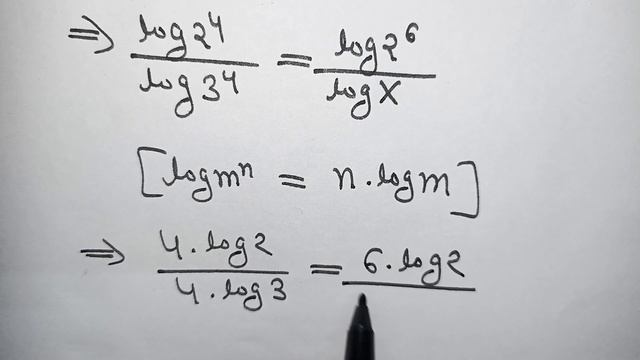 ⇒ log2⁴/log3⁴ = log2⁶/logX
[logmⁿ = n·logm]
⇒ 4·log2/4·log3 = 6·log2/